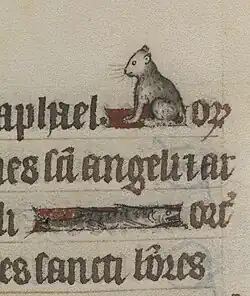 aphael. or
nes sci angeli et ar
li . or
es sancti bores